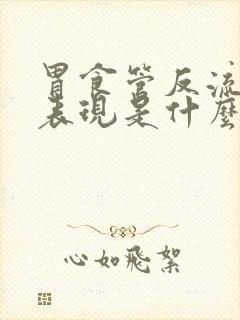 胃食管反流
表現是什麼
心如飛絮